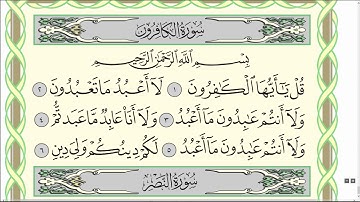 سُورَةُ الْكَافِرُونَ
بِسْمِ اللَّهِ الرَّحْمَٰنِ الرَّحِيمِ
قُلْ يَا أَيُّهَا الْكَافِرُونَ ١ لَا أَعْبُدُ مَا تَعْبُدُونَ ٢
وَلَا أَنْتُمْ عَابِدُونَ مَا أَعْبُدُ ٣ وَلَا أَنَا عَابِدٌ مَا عَبَدْتُمْ ٤
وَلَا أَنْتُمْ عَابِدُونَ مَا أَعْبُدُ ٥ لَكُمْ دِينُكُمْ وَلِيَ دِينِ ٦
سُورَةُ النَّصْرِ